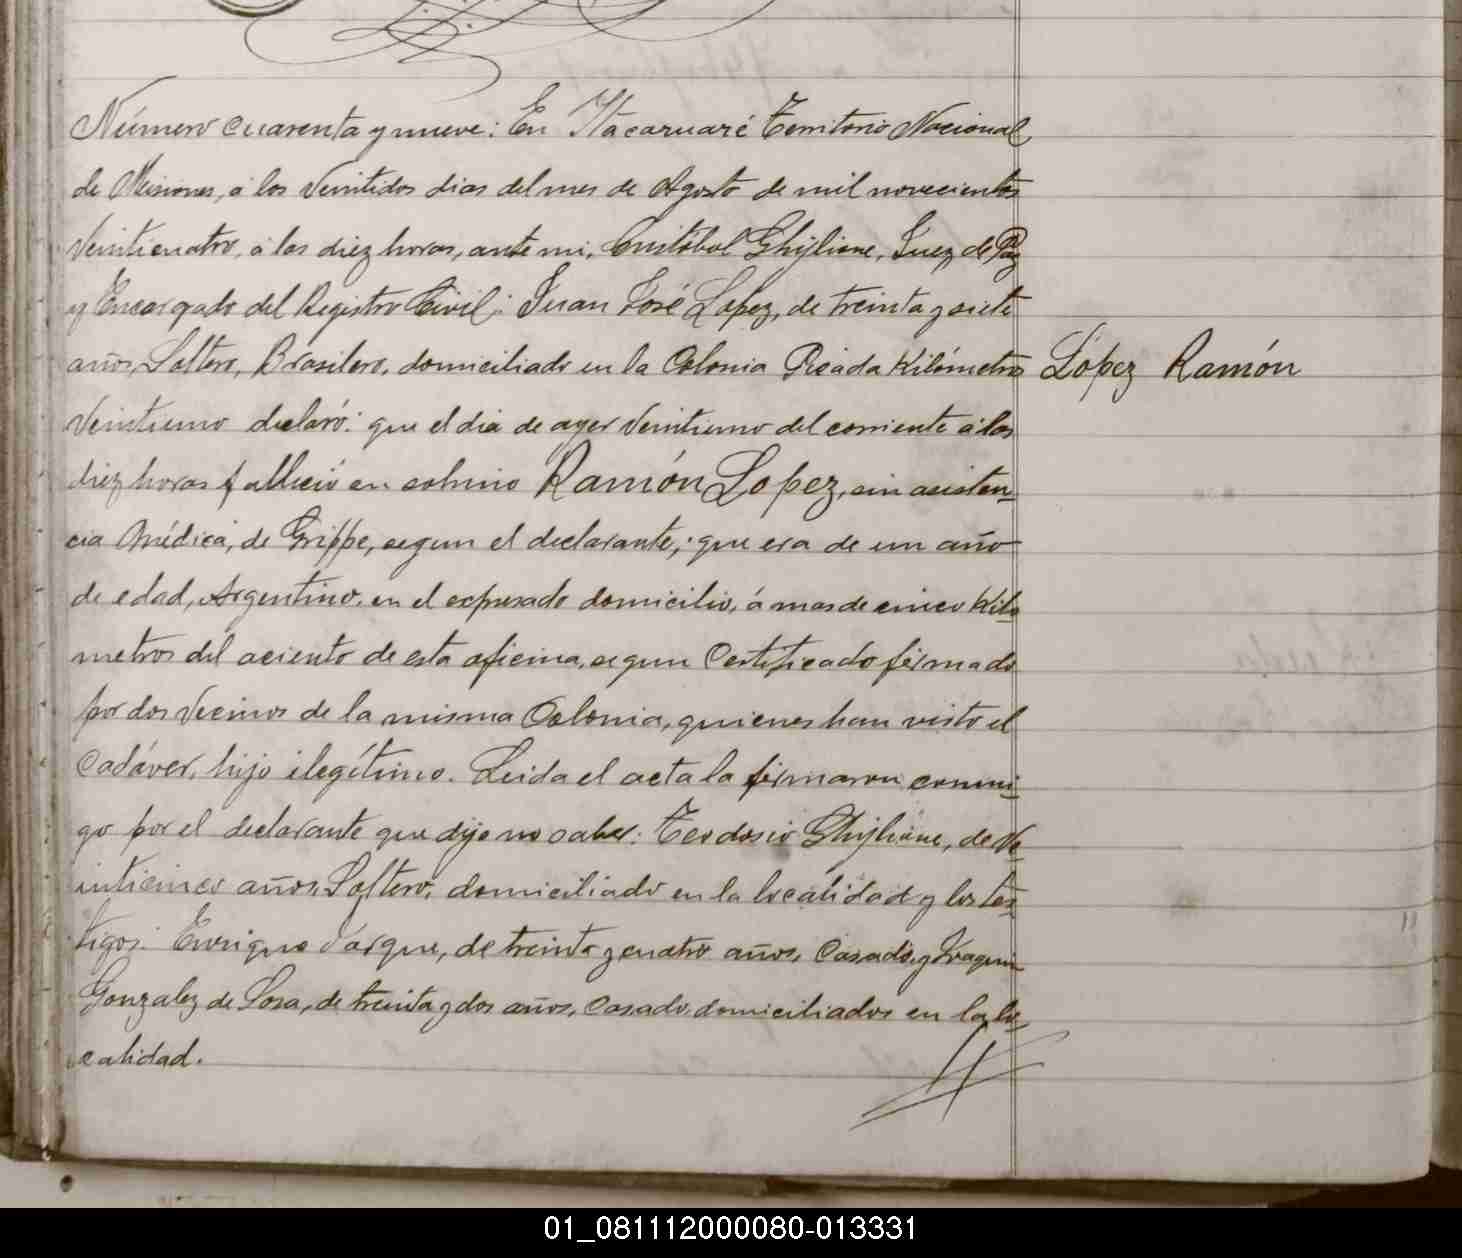 Número cuarenta y nueve: En Itacaruaré Territorio Nacional
de Misiones, á los veintidos dias del mes de Agosto de mil novecientos
veinticuatro, á las diez horas, ante mi, Cristóbal Ghiglione, Juez de Paz
y Encargado del Registro Civil: Juan José Lopez, de treinta y siete
años, Soltero, Brasilero, domiciliado en la Colonia Picada Kilómetro
López Ramón
veintiuno declaró: que el dia de ayer veintiuno del corriente á las
diez horas falleció en Ramón Lopez, sin asisten-
cia Médica, de Grippe, segun el declarante; que era de un año
de edad, Argentino, en el expresado domicilio, á mas de cinco Kiló-
metros del aciento de esta oficina, segun Certificado firmado
por dos vecinos de la misma Colonia, quienes han visto el
Cadáver, hijo ilegítimo. Leida el acta la firmaron conmi-
go por el declarante que dijo no saber: Teodosio Ghiglione, de ve-
inticinco años, Soltero, domiciliado en la localidad y los tes-
tigos: Enrique Jarque, de treinta y cuatro años, Casado, y Joaquin
Gonzalez de Sosa, de treinta y dos años, Casado, domiciliados en la lo-
calidad.
01_081112000080-013331